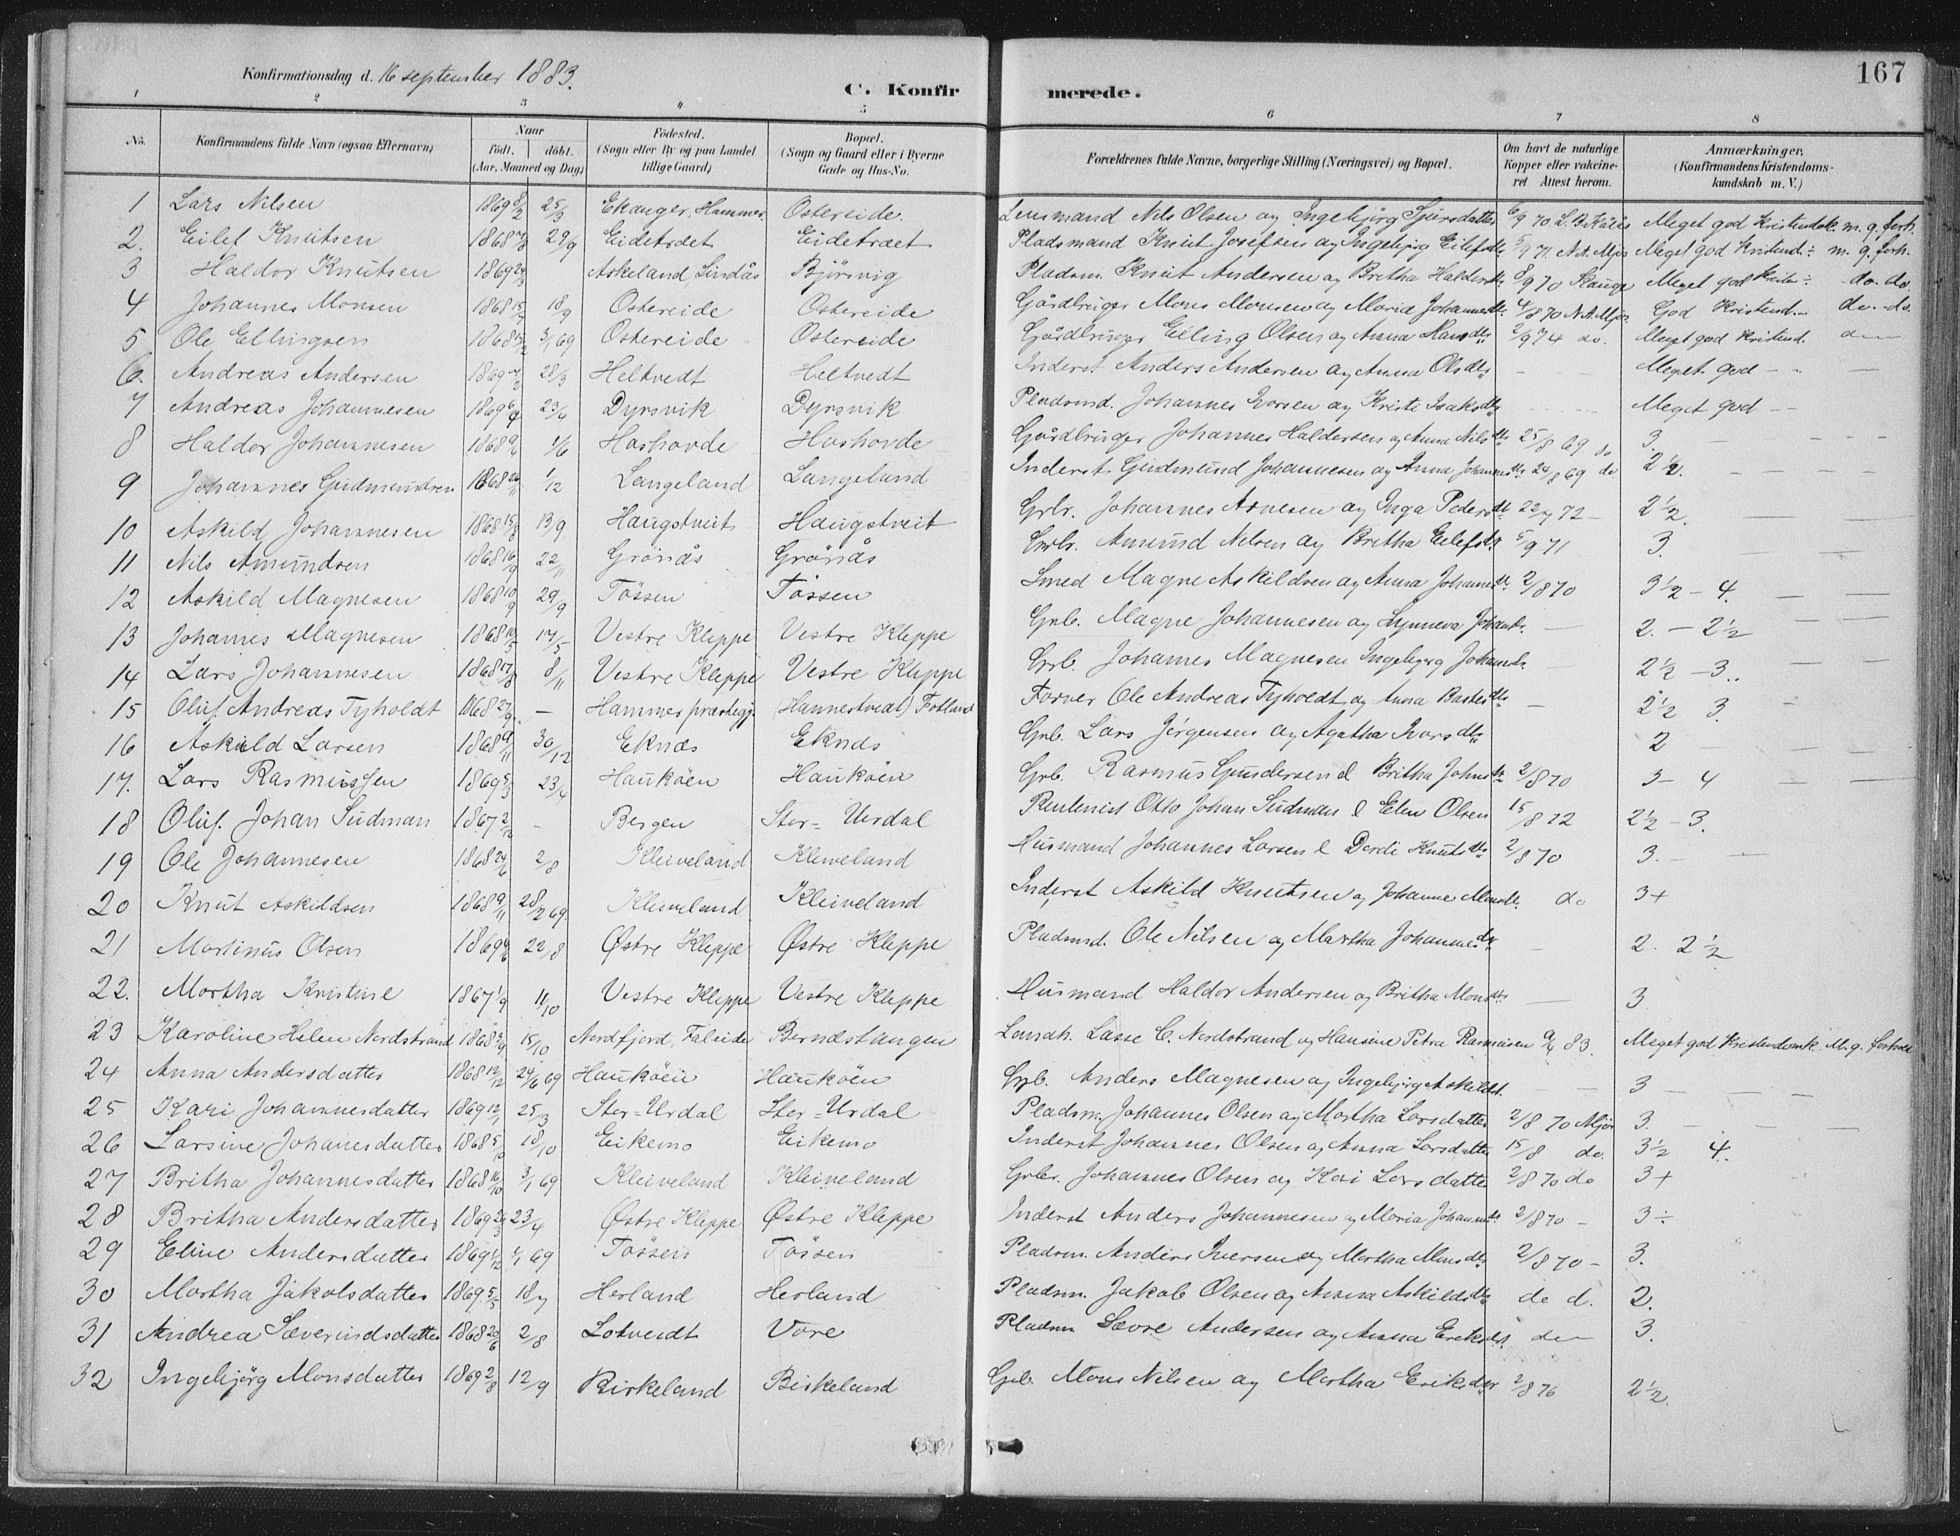 167
Konfirmationsdag d. 16 september 1883.
C. Konfirmerede.
1 2 3 " 5 6 7 8
No. Konfirmandens fulde Navn (ogsaa Efternavn) Naar födt. döbt. (Aar, Maaned og Dag) Födested. (Sogn eller By og paa Landet tillige Gaard) Bopæl. (Sogn og Gaard eller i Byerne Gade og Hus-No. Forældrenes fulde Navne, borgerlige Stilling (Næringsvei) og Bopæl. Om havt de naturlige Kopper eller vakcineret Attest herom. Anmærkninger, (Konfirmandens Kristendomskundskab m. V.)
1 Lars Nilsen 1869 8/2 25/3 Ekanger, Hammer. Ostereide. Lensmand Nils Olsen og Ingebjörg Sjursdatter 6/9 70 Meget god Kristendsk. m. g. forh.
2. Eilef Knutsen 1868 29/9 Eidetræet Eidetræet Pladsmand Knut Josefsen og Ingebjörg Eilefsdtr 5/9 71 Meget god Kristend. m. g. forh.
3 Haldor Knutsen 1869 Askeland, Lindås Björsvig Pladsm. Knut Andersen og Britha Haldorsdtr 8/9 70 Skauge Meget god Kristend. do. do.
4 Johannes Monsen 1868 18/9 Ostereide Ostereide Gårdbruger Mons Monsen og Maria Johannesdtr 4/8 70 God Kristend. do. do
5 Ole Ellingsen 1868 3/1 69 Ostereide Ostereide Gårdbruger Elling Olsen og Anna Hansdtr 2/9 74 do. Meget god Kristend.
6. Andreas Andersen 1869 28/3 Heltvedt Heltvedt Inderst Anders Andersen og Anna Olsdtr Meget god
7 Andreas Johannesen 1869 6/4 23/6 Dyrsvik Dyrsvik Pladsmd. Johannes Iversen og Kristi Isaksdtr Meget god
8 Haldor Johannesen 1868 1/6 Hoshovde Hoshovde Gårdbruger Johannes Haldersen og Anna Nilsdtr 25/8 69 do 3.
9 Johannes Gudmundsen 1868 1/12 Langeland Langeland Inderst Gudmund Johannesen og Anna Johannesdtr 24/8 69 do 2 1/2.
10 Askild Johannesen 1868 15/8 13/9. Haugstveit Haugstveit Grbr. Johannes Arnesen og Inga Pedersdtr 2 1/2.
11 Nils Amundsen 1868 16/9 22/11 Grönås Grönås Grbr. Amund Nilsen og Britha Eilefsdtr 5/9 71 3.
12 Askild Magnesen 1868 10/9 29/9 Tössen Tössen Smed Magne Askildsen og Anna Johannesdtr 2/8 70 3 1/2 - 4.
13 Johannes Magnesen 1868 17/5 Vestre Kleppe Vestre Kleppe Grb. Magne Johannesen og Synneva Johansdtr. 2. - 2 1/2
14 Lars Johannesen 1868 17/8 8/11 Vestre Kleppe Vestre Kleppe Grb. Johannes Magnesen Ingebjörg Johansdtr. 2 1/2 - 3..
15 Oluf Andreas Tyholdt 1868 27/9 — Hammer præstegj. (Hannestvedt) Fotland Farver Ole Andreas Tyholdt og Anna 2 1/2 3.
16 Askild Larsen 1868 9/11 30/12 Eknes Eknes Grb. Lars Jörgensen og Agatha Ivarsdtr 2
17. Lars Rasmussen 1869 5/3 23/4 Hauköen Hauköen Grb. Rasmus Gundersen & Britha Johnsdtr 2/8 70 3 - 4
18 Oluf Johan Sudman 1867 2/12 - Bergen Stor-Urdal Rentenist Otto Johan Sudman & Elen Olsen 15/8 72 2 1/2 - 3.
19 Ole Johannesen 1868 24/6 2/8 Kleiveland Kleiveland Husmand Johannes Larsen & Dordi Knutsdtr 2/8 70 3.
20 Knut Askildsen 1868 9/11 28/2 69. Kleiveland Kleiveland Inderst Askild Knutsen og Johanne Monsdtr. do 3+
21 Martinus Olsen 1869 22/8 Østre Kleppe Østre Kleppe Pladsmd. Ole Nilsen og Martha Johannesdtr 2. 2 1/2
22. Martha Kristine 1867 1/9 11/10 Vestre Kleppe Vestre Kleppe Husmand Haldor Andersen og Britha Monsdtr 3
23 Karoline Helen Nordstrand 1868 15/10 Nordfjord, Faleide Berndstangen Landh. Lasse C. Nordstrand og Hansine Petra Rasmusen 83. Meget god Kristendomk. M. g. forhold
24 Anna Andersdatter 1868 12/12 24/6 69 Hauköen Hauköen Grb. Anders Magnesen og Ingebjörg Askildsdt. 3
25 Kari Johannesdatter 1869 12/1 25/3 Stor-Urdal Stor-Urdal Pladsm. Johannes Olsen og Martha Larsdatter 2/8 70 Mjös 3.
26 Larsine Johannesdatter 1868 5/10 18/10 Eikemo Eikemo Inderst Johannes Olsen og Anna Larsdatter 15/8 do. 3 1/2 4.
27 Britha Johannesdatter 1868 16/10 3/1 69 Kleiveland Kleiveland Grbr. Johannes Olsen og Kari Larsdatter 2/8 70 do 3+
28 Britha Andersdatter 1869 23/4 Østre Kleppe Østre Kleppe Inderst Anders Johannesen og Maria Johannesdtr 2/8 70 - 3÷
29 Eline Andersdatter 1869 69 Tössen Tössen Pladsm. Anders Iversen og Martha Monsdtr 2/8 70 - 3.
30 Martha Jakobsdatter 1869 5/5 18/7 Herland Herland Pladsm. Jakob Olsen og Anna Askildsdtr do d. 2.
31 Andrea Sæverindsdatter 1868 20/6 2/8 Lotveidt Vore Pladsm Sævre Andersen og Anna Eriksdt. do 3.
32 Ingebjörg Monsdatter 1869 2/8 12/9 Birkeland Birkeland Grb. Mons Nilsen og Martha Eriksdtr 2/8 76 2 1/2.